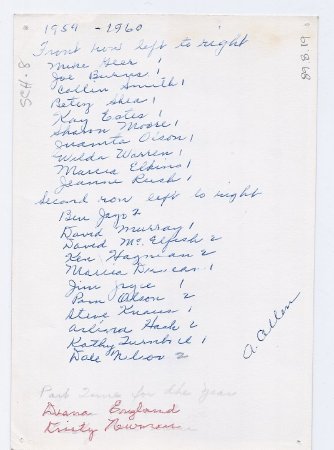 1959 - 1960
Front row left to right
Mike Geer 1
Joe Burns 1
Collin Smith 1
Betsy Shea 1
Kay Estes 1
Sharon Moore 1
Juanita Olson 1
Wilda Warren 1
Marcia Elkins 1
Jeanne Rush 1
Second row left to right
Ben 2
David Murray 1
David Mc Elfish 2
Ken Hagman 2
Marcia Duncan 1
Jim Joyce 1
Pam Olson 2
Steve Knaus 1
Hack 2
Kathy Turnbull 1
Dale Nelson 2
Part Time for the Year
Diana England
Kristy
SCH-8
89.8.19
A. Allen